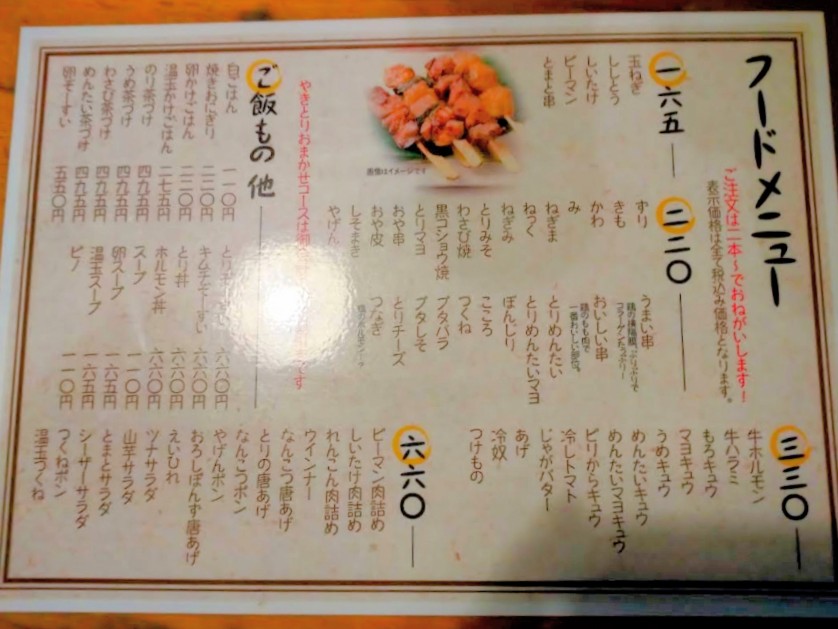 フードメニュー
ご注文は二本～でおねがいします！
表示価格は全て税込み価格となります。
一六五
玉ねぎ
ししとう
しいたけ
ピーマン
とまと串
画像はイメージです
二二〇
ずり
きも
かわ
み
ねぎま
ねっく
ねぎみ
とりみそ
わさび焼
黒コショウ焼
とりマヨ
おや串
おや皮
しそまき
やげん
うまい串
鶏の横隔膜。ぷりぷりで
コラーゲンたっぷり！
おいしい串
鶏のもも肉で
一番おいしい部位。
とりめんたい
とりめんたいマヨ
ぼんじり
こころ
つくね
ブタバラ
ブタしそ
とりチーズ
つなぎ
三三〇
牛ホルモン
牛ハラミ
もろキュウ
マヨキュウ
うめキュウ
めんたいキュウ
めんたいマヨキュウ
ピリからキュウ
冷しトマト
じゃがバター
あげ
冷奴
つけもの
やきとりおまかせコースは
です
ご飯もの 他
白ごはん 一一〇円
焼きおにぎり 二二〇円
卵かけごはん 二二〇円
温玉かけごはん 二七五円
のり茶づけ 四九五円
うめ茶づけ 四九五円
わさび茶づけ 四九五円
めんたい茶づけ 四九五円
卵ぞーすい 五五〇円
六六〇円
キムチぞーすい 六六〇円
とり丼 六六〇円
ホルモン丼 六六〇円
スープ 一一〇円
卵スープ 一六五円
温玉スープ 一六五円
ピノ 一一〇円
六六〇
ピーマン肉詰め
しいたけ肉詰め
れんこん肉詰め
ウインナー
なんこつ唐あげ
とりの唐あげ
なんこつポン
やげんポン
おろしぽんず唐あげ
えいひれ
ツナサラダ
山芋サラダ
とまとサラダ
シーザーサラダ
つくねポン
温玉つくね